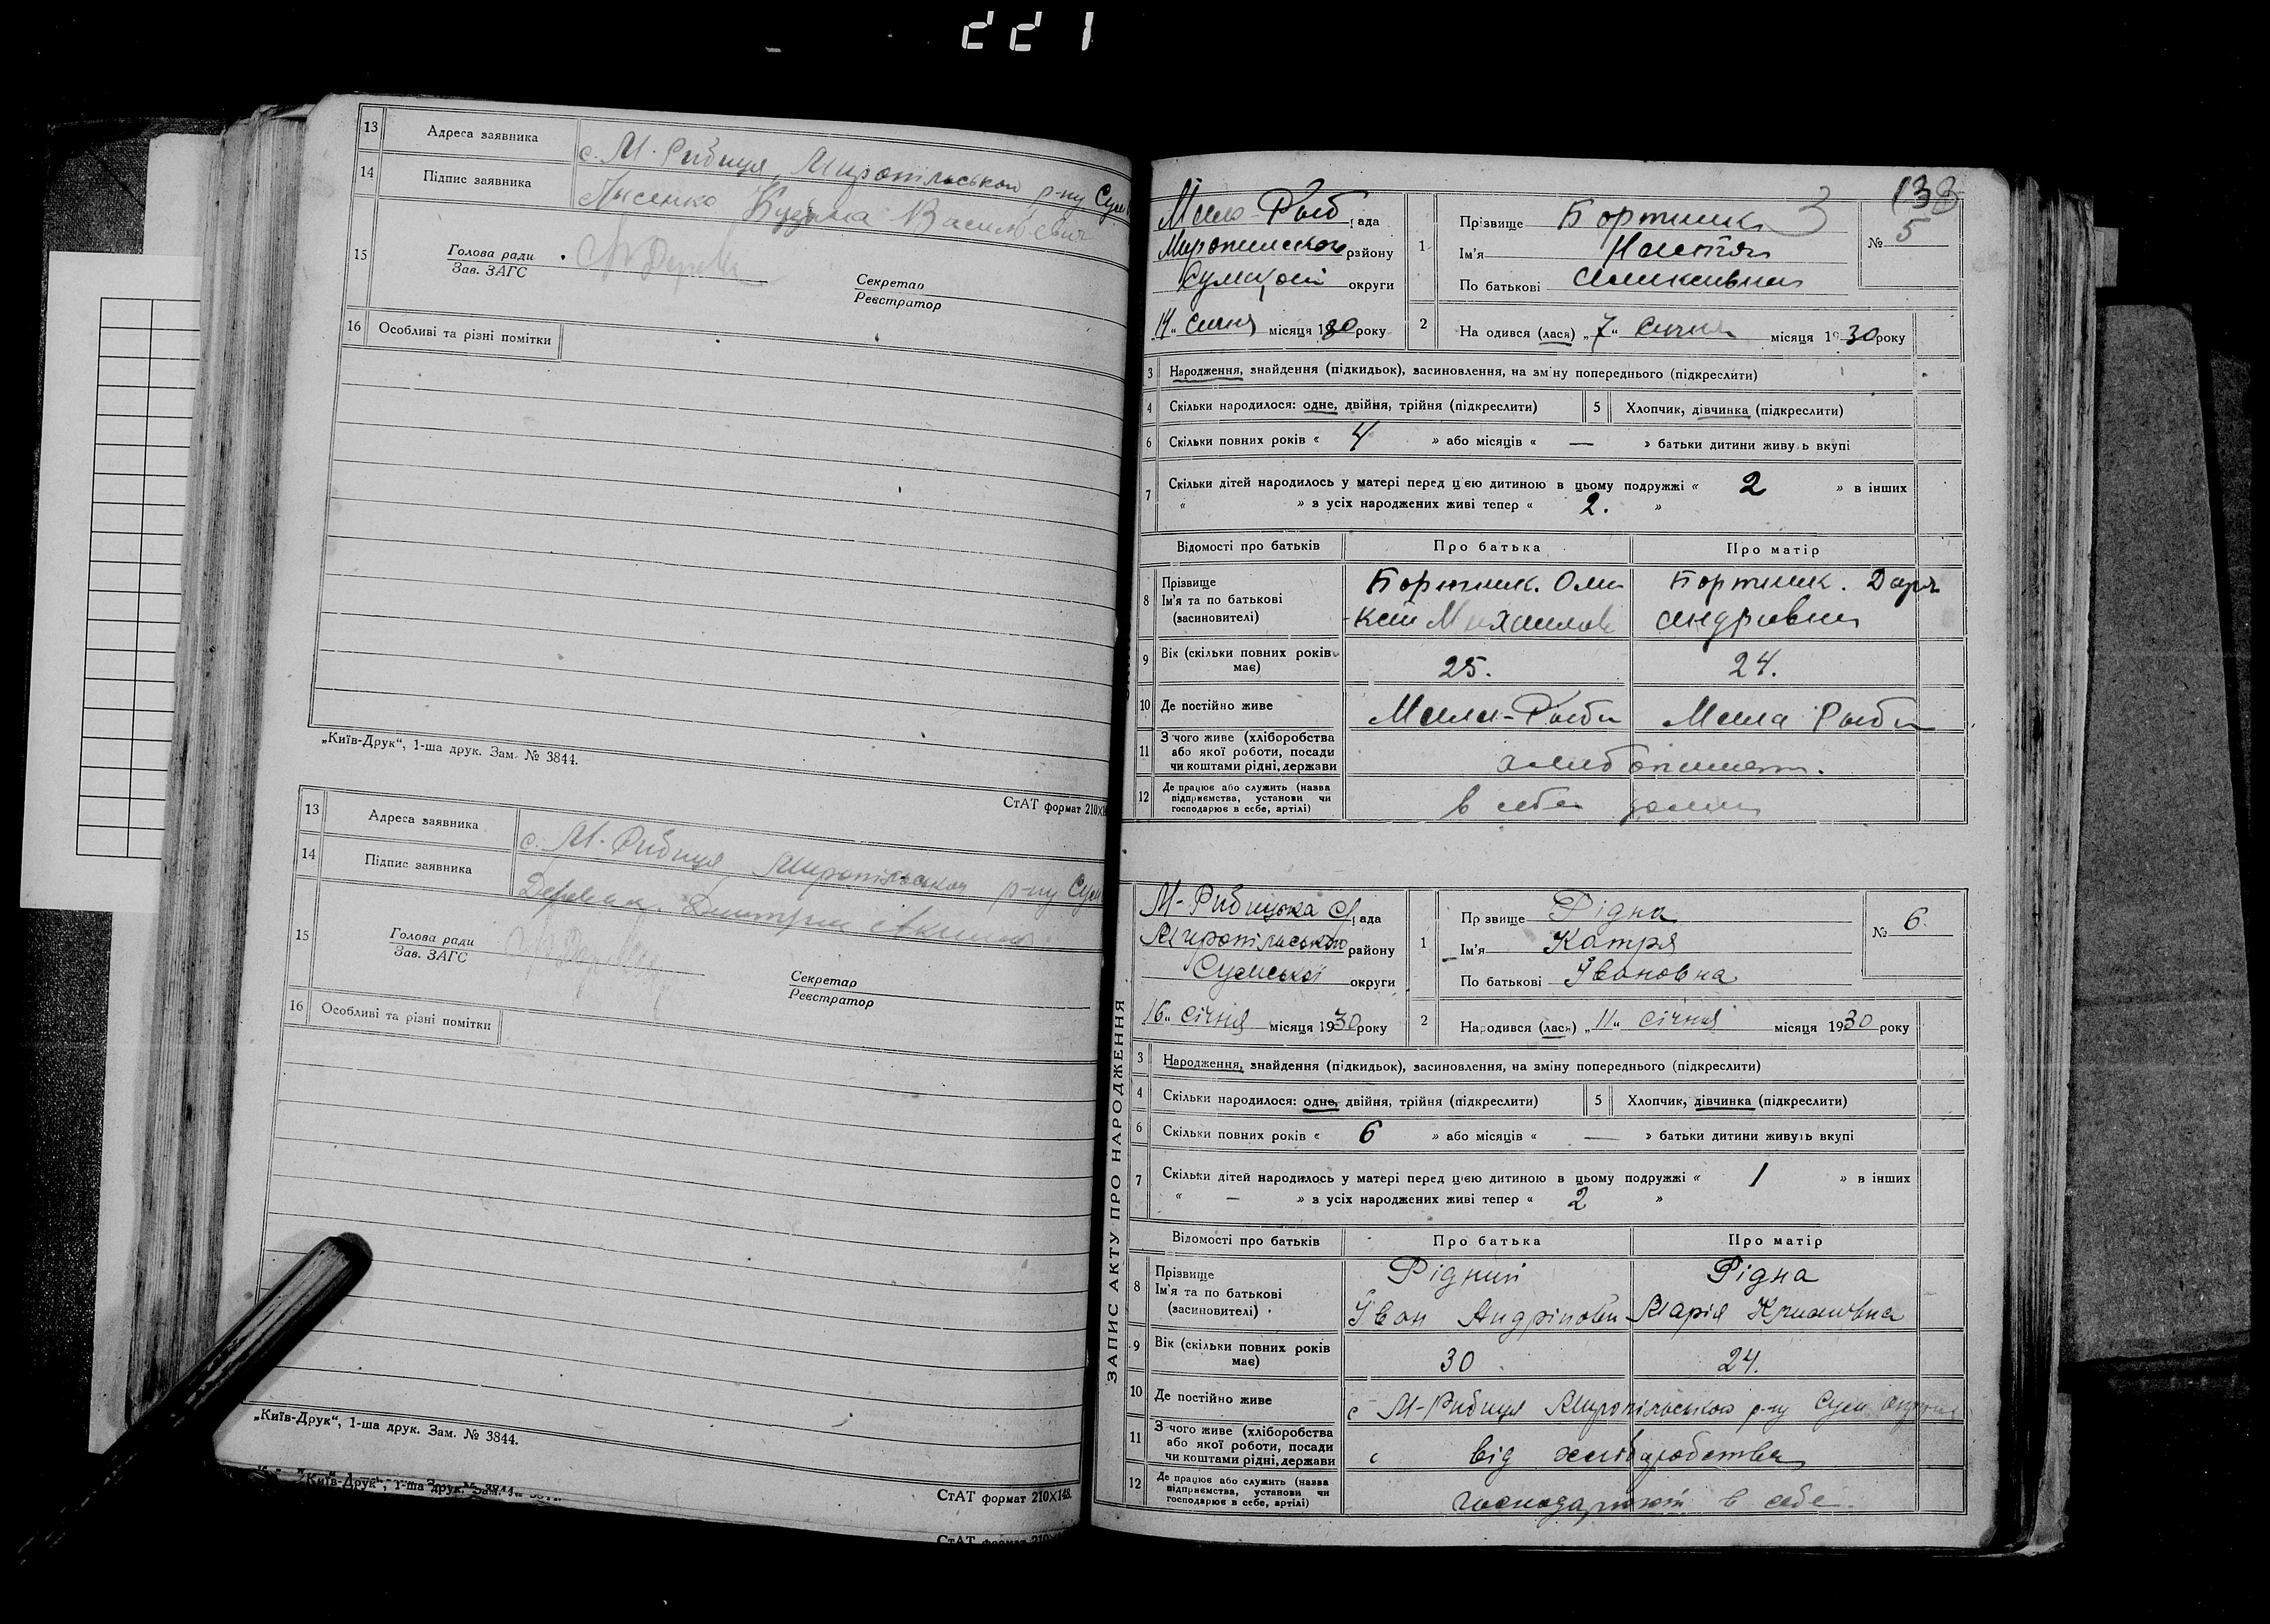 221
13 Адреса заявника с. М. Рибиця, Миропільського р-ну Сум
14 Підпис заявника Лысенко Кузьма Васильевич
15 Голова ради
Зав. ЗАГС
Секретар
Реєстратор
16 Особливі та різні помітки
„Київ-Друк“, 1-ша друк. Зам. № 3844.
СтАТ формат 210×1
13 Адреса заявника с. М. Рибиця, Миропільського р-ну Сум
14 Підпис заявника
15 Голова ради
Зав. ЗАГС
Секретар
Реєстратор
16 Особливі та різні помітки
„Київ-Друк“, 1-ша друк. Зам. № 3844.
СтАТ формат 210×148.
„Київ-Друк“, 1-ша друк. Зам.
СтАТ формат 210
138
Мало-Рыб ада
района
Сумської округи
14 „ Січня місяця 1930 року
1 Прізвище Бортник 3
Ім'я Настя
По батькові Олексивна
№ 5
2 На одився (лася) „ 7 “ Січня місяця 1930 року
3 Народження, знайдення (підкидьок), засиновлення, на зміну попереднього (підкреслити)
4 Скільки народилося: одне, двійня, трійня (підкреслити) 5 Хлопчик, дівчинка (підкреслити)
6 Скільки повних років « 4 » або місяців « — » батьки дитини живуть вкупі
7 Скільки дітей народилось у матері перед цією дитиною в цьому подружжі « 2 » в інших
« » з усіх народжених живі тепер « 2. »
Відомості про батьків Про батька Про матір
8 Прізвище
Ім'я та по батькові
(засиновителі)
Бортник. Оли
ксий Михайлов
Бортник. Даря
Андривна
9 Вік (скільки повних років має) 25. 24.
10 Де постійно живе Мала-Рыби Мала Рыби
11 З чого живе (хліборобства або якої роботи, посади чи коштами рідні, держави
12 Де працює або служить (назва підприємства, установи чи господарює в себе, артілі) в себе дома
ЗАПИС АКТУ ПРО НАРОДЖЕННЯ
М-Рибицька С/ ада
Миропільського району
Сумської округи
16 „ Січня місяця 1930 року
1 Пр звище Рідна
Ім'я Катря
По батькові Івановна
№ 6.
2 Народився (лася) „ 11 “ Січня місяця 1930 року
3 Народження, знайдення (підкидьок), засиновлення, на зміну попереднього (підкреслити)
4 Скільки народилося: одне, двійня, трійня (підкреслити) 5 Хлопчик, дівчинка (підкреслити)
6 Скільки повних років « 6 » або місяців « — » батьки дитини живуть вкупі
7 Скільки дітей народилось у матері перед цією дитиною в цьому подружжі « 1 » в інших
« — » з усіх народжених живі тепер « 2 »
Відомості про батьків Про батька Про матір
8 Прізвище
Ім'я та по батькові
(засиновителі)
Рідний
Іван Андріпович
Рідна
Марія
9 Вік (скільки повних років має) 30 24.
10 Де постійно живе с М-Рибиця Миропільського р-ну Сум округи
11 З чого живе (хліборобства або якої роботи, посади чи коштами рідні, держави від хліборобства
12 Де працює або служить (назва підприємства, установи чи господарює в себе, артілі) господарюють в себе.